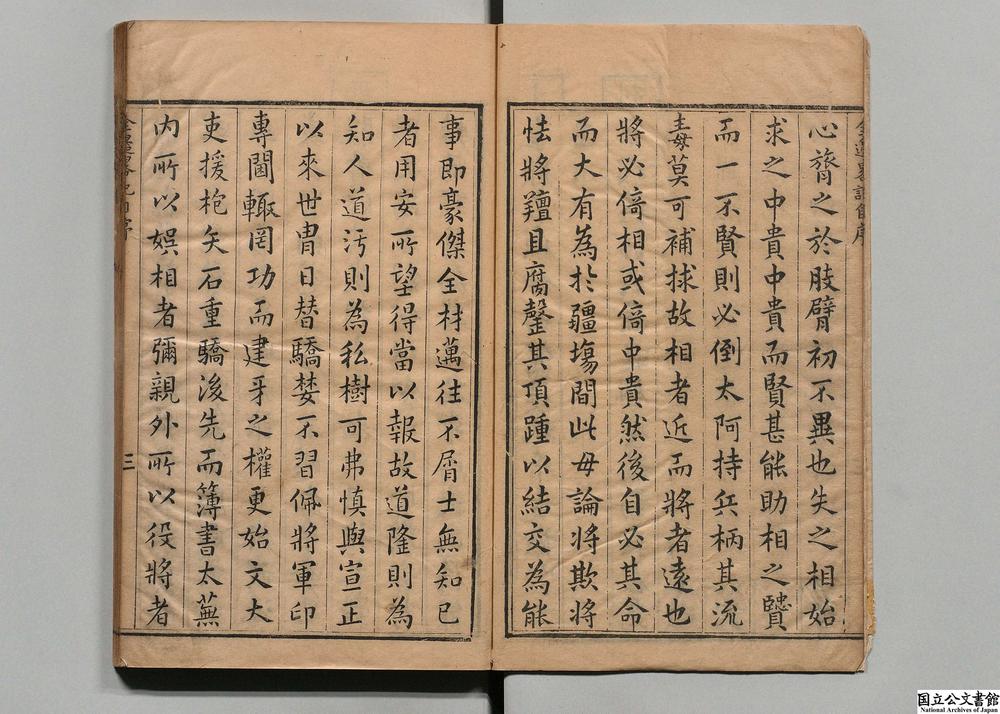 心膂之於肢臂初不異也失之相始
求之中貴中貴而賢甚能助相之賢
而一不賢則必倒太阿持兵柄其流
毒莫可補捄故相者近而將者遠也
將必倚相或倚中貴然後自必其命
而大有為於疆塲間此毋論將欺將
怯將羶且腐鏧其頂踵以結交為能
事即豪傑全材邁往不屑士無知已
者用安所望得當以報故道隆則為
知人道汚則為私樹可弗慎與宣正
以來世冑日替驕婪不習佩將軍印
專閫輙罔功而建牙之權更始文大
吏援枹矢石重驕後先而簿書太蕪
内所以娯相者彌親外所以役將者
三
国立公文書館
National Archives of Japan